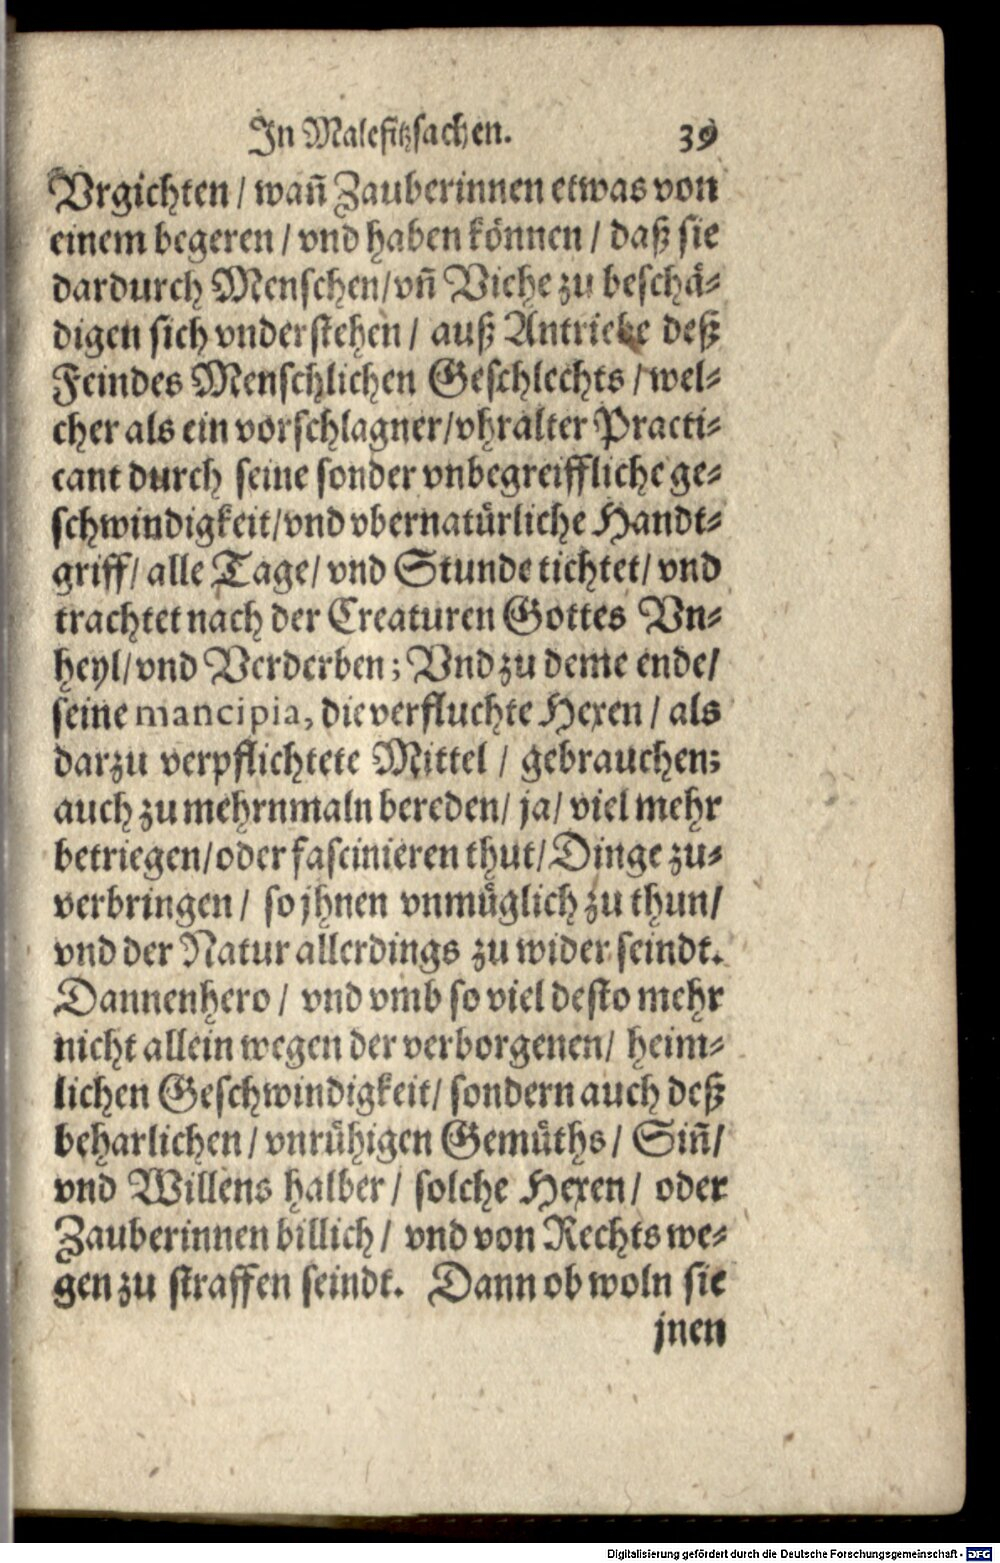 In Malefitzsachen. 39
Vrgichten / wañ Zauberinnen etwas von
einem begeren / vnd haben können / daß sie
dardurch Menschen/vñ Viehe zu beschä⸗
digen sich vnderstehen / auß Antriebe deß
Feindes Menschlichen Geschlechts / wel⸗
cher als ein vorschlagner/vhralter Practi⸗
cant durch seine sonder vnbegreiffliche ge⸗
schwindigkeit/vnd vbernatürliche Handt⸗
griff/ alle Tage/ vnd Stunde tichtet/ vnd
trachtet nach der Creaturen Gottes Vn⸗
heyl/vnd Verderben; Vnd zu deme ende/
seine mancipia, die verfluchte Hexen / als
darzu verpflichtete Mittel / gebrauchen;
auch zu mehrnmaln bereden/ ja/ viel mehr
betriegen/oder fascinieren thut/ Dinge zu⸗
verbringen / so jhnen vnmüglich zu thun/
vnd der Natur allerdings zu wider seindt.
Dannenhero / vnd vmb so viel desto mehr
nicht allein wegen der verborgenen/ heim⸗
lichen Geschwindigkeit/ sondern auch deß
beharlichen / vnrühigen Gemüths/ Siñ/
vnd Willens halber / solche Hexen/ oder
Zauberinnen billich / vnd von Rechts we⸗
gen zu straffen seindt. Dann ob woln sie
jnen
Digitalisierung gefördert durch die Deutsche Forschungsgemeinschaft - DFG